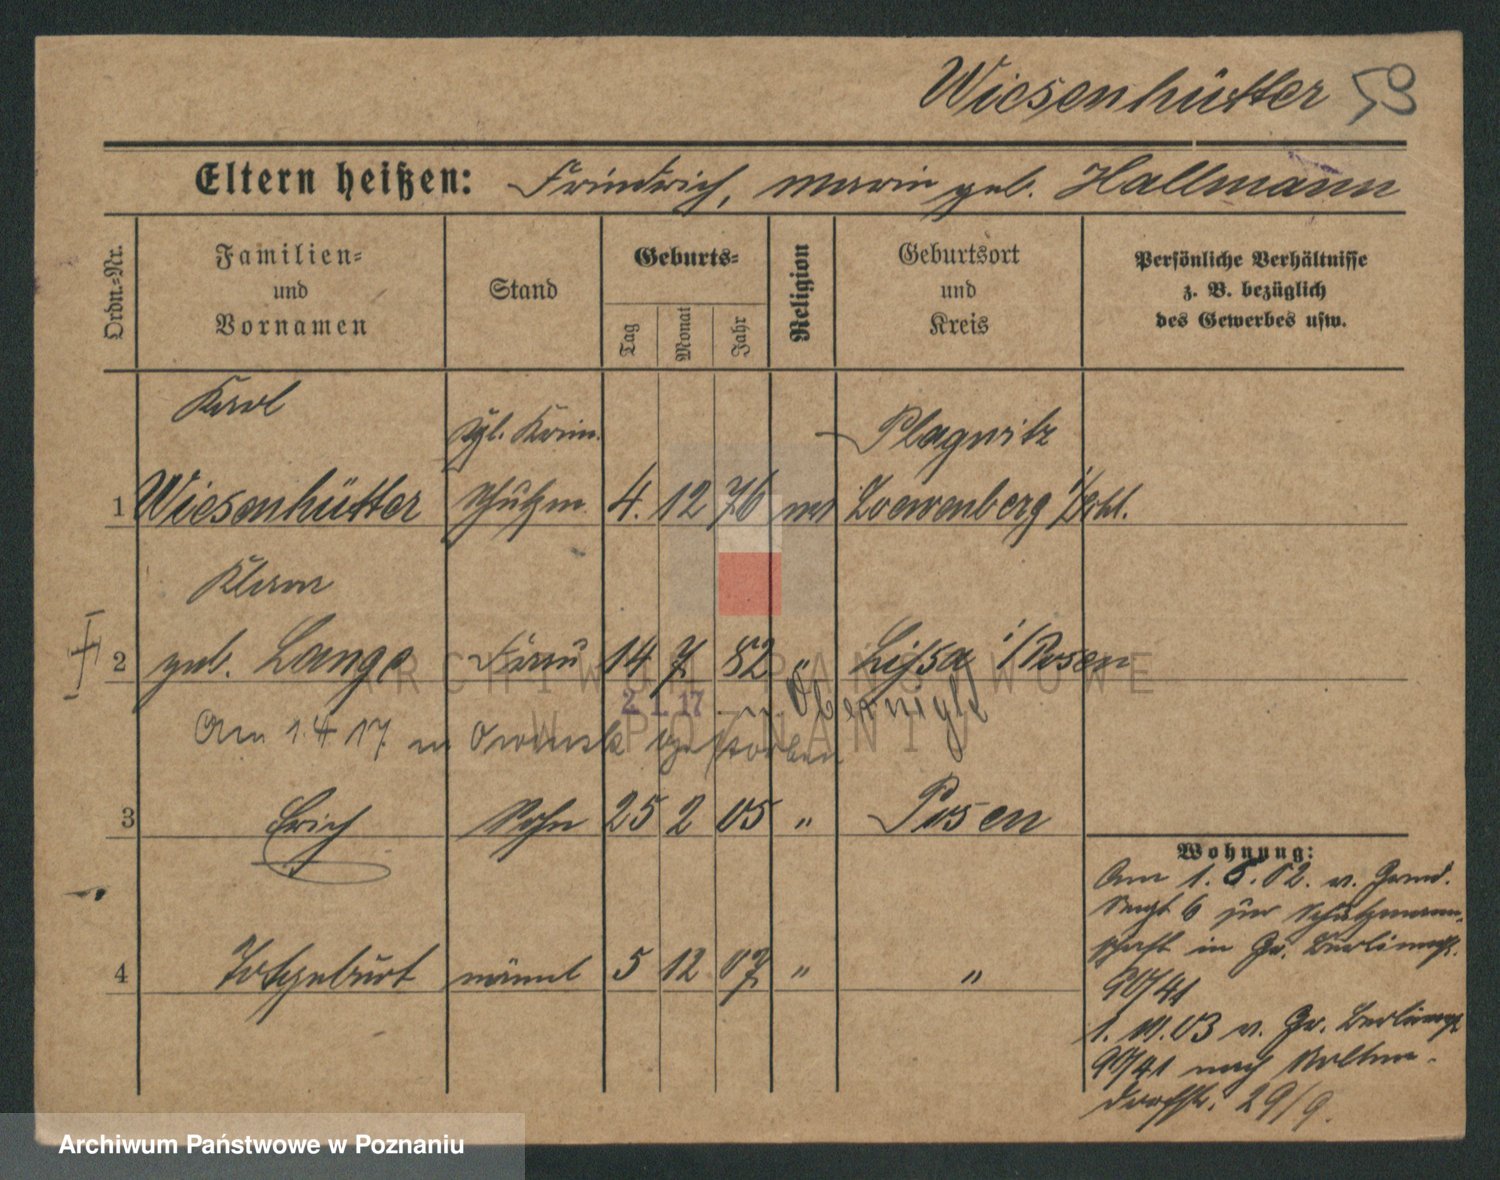 Wiesenhütter 59
Eltern heißen: Friedrich, Marie geb. Hallmann
Ordn.-Nr.
Familien-
und
Vornamen
Stand
Geburts-
Tag
Monat
Jahr
Religion
Geburtsort
und
Kreis
Persönliche Verhältnisse
z. B. bezüglich
des Gewerbes usw.
Karl
Kgl. Krim. Plagwitz
1 Wiesenhütter Schutzm. 4. 12 76 Loewenberg i/Schl.
Klara
2 geb. Lange Frau 14 7 82 " Lissa i/Posen
2. 1. 17 Obernigk
Am 1.4 17. in Owinsk gestorben
3 Erich Sohn 25 2 05 " Posen
Wohnung:
Am 1. 5. 02. v.
6 zur Schutzmann-
schaft in Gr. Berlinerst.
90/41
1. 03 v. Gr. Berlinerst
90/41 nach
29/9.
4 Totgeburt männl 5 12 07 " "
ARCHIWUM PAŃSTWOWE
W POZNANIU
Archiwum Państwowe w Poznaniu